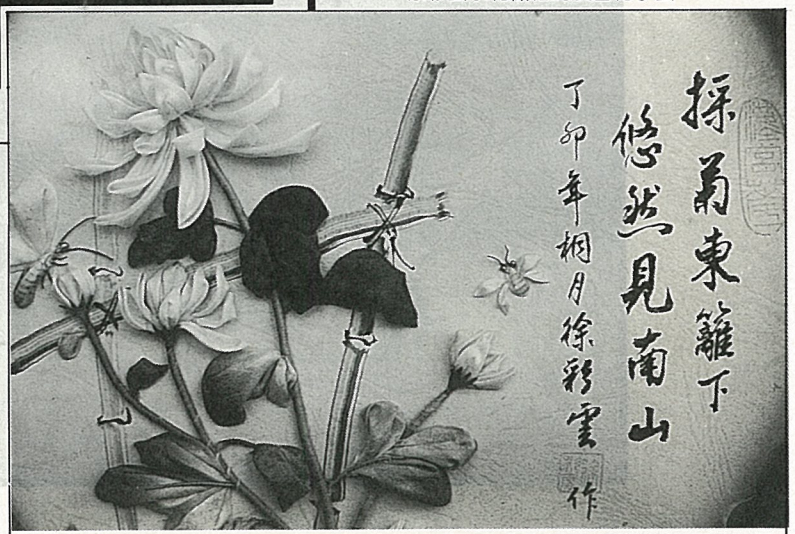 採菊東籬下
悠然見南山
丁卯年桐月徐彩雲作